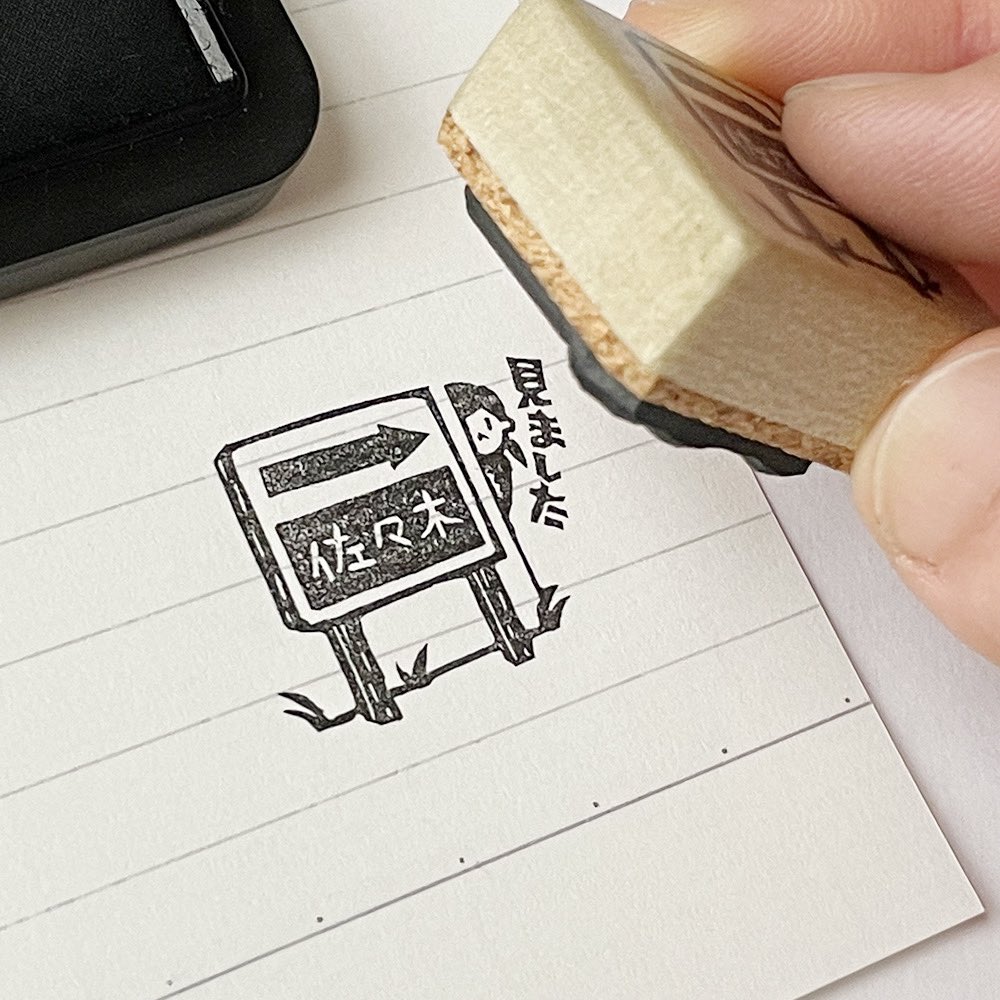 佐々木
見ました